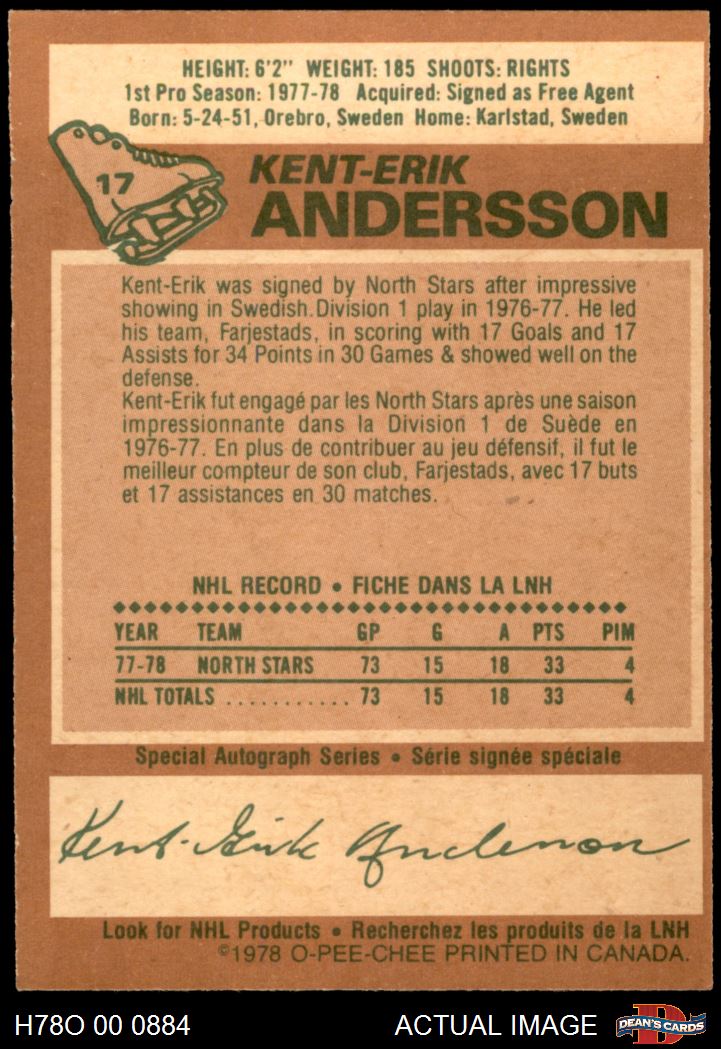 HEIGHT: 6'2" WEIGHT: 185 SHOOTS: RIGHTS
1st Pro Season: 1977-78 Acquired: Signed as Free Agent
Born: 5-24-51, Orebro, Sweden Home: Karlstad, Sweden
17
KENT-ERIK
ANDERSSON
Kent-Erik was signed by North Stars after impressive
showing in Swedish Division 1 play in 1976-77. He led
his team, Farjestads, in scoring with 17 Goals and 17
Assists for 34 Points in 30 Games & showed well on the
defense.
Kent-Erik fut engagé par les North Stars après une saison
impressionnante dans la Division 1 de Suède en
1976-77. En plus de contribuer au jeu défensif, il fut le
meilleur compteur de son club, Farjestads, avec 17 buts
et 17 assistances en 30 matches.
NHL RECORD • FICHE DANS LA LNH
YEAR TEAM GP G A PTS PIM
77-78 NORTH STARS 73 15 18 33 4
NHL TOTALS ........... 73 15 18 33 4
Special Autograph Series • Série signée spéciale
Kent-Erik Andersson
Look for NHL Products • Recherchez les produits de la LNH
©1978 O-PEE-CHEE PRINTED IN CANADA.
H78O 00 0884 ACTUAL IMAGE D DEAN'S CARDS